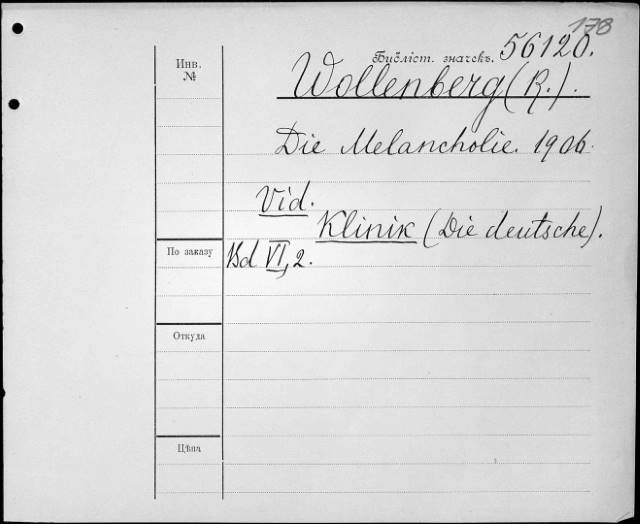 178
Инв.
№
Бібліст. значекъ. 56120.
Wollenberg (R.).
Die Melancholie. 1906.
Vid.
Klinik (Die deutsche).
По заказу
Bd VI, 2.
Откуда
Цѣна